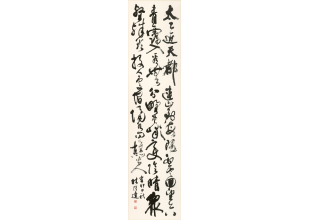 太乙近天都連山到海隅白雲回望合
青靄入看無分野中峰變陰晴眾
壑殊欲投人處宿隔水問樵夫